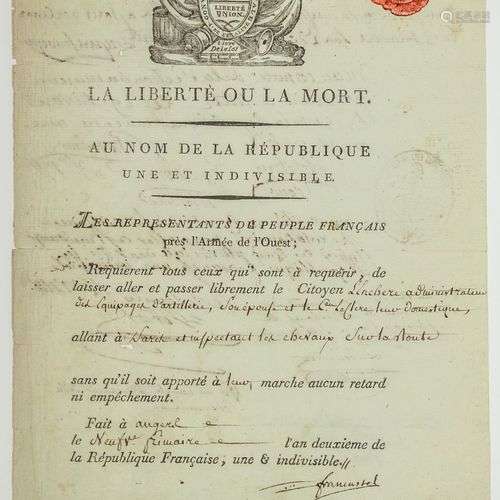 LIBERTÉ
UNION
LA LIBERTÉ OU LA MORT.
AU NOM DE LA RÉPUBLIQUE
UNE ET INDIVISIBLE.
LES REPRÉSENTANTS DU PEUPLE FRANÇAIS
près l'Armée de l'Ouest;
Requierent tous ceux qui sont à requérir, de
laisser aller et passer librement le Citoyen administrateur
des Equipages d'artillerie, Son épouse et le Cen Leclere leur domestique,
allant à et inspectant les chevaux Sur la Route
sans qu'il soit apporté à leur marche aucun retard
ni empêchement.
Fait à angers
le Neuf frimaire l'an deuxième de
la République Française, une & indivisible.
francastel